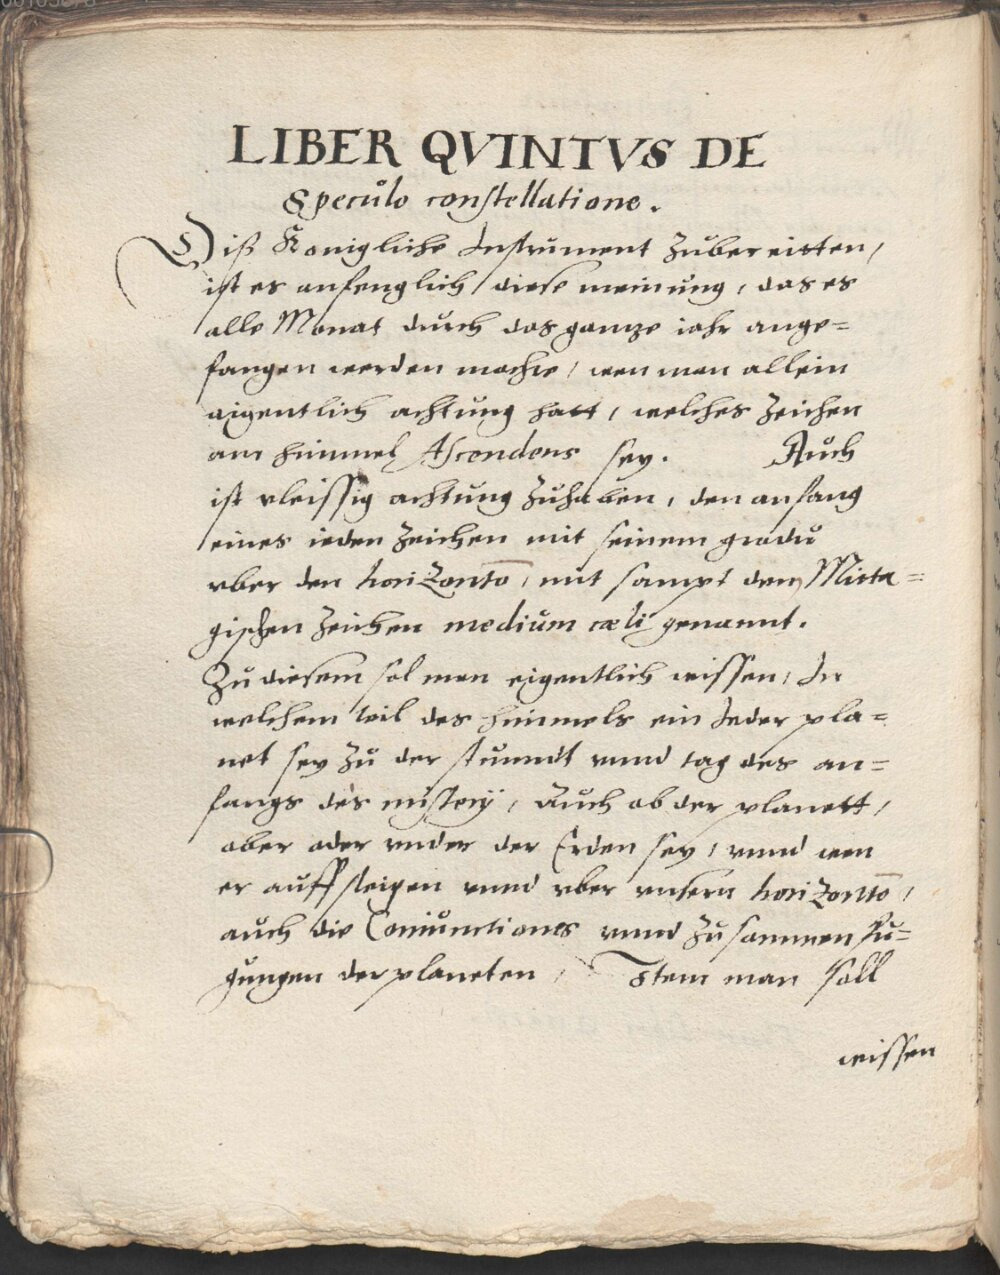 LIBER QVINTVS DE
Speculo constellatione.
Diß Konigliche Instrument Zubereitten,
ist es anfenglich diese meinung, das es
alle Monat durch das gantze iahr ange=
fangen werden mochte, wen man allein
eigentlich achtung hatt, welches Zeichen
am himmel Ascendens sey. Auch
ist vleissig achtung Zuhaben, den anfang
eines ieden Zeichen mit seinem gradu
vber den horiZonte, mit sampt dem Mitta=
gischen Zeichen medium cæli genannt.
Zu diesem sol man eigentlich wissen, In
welchem teil des himmels ein Jeder pla=
net sey Zu der stunndt vnnd tag des an=
fangs des misterÿ, Auch ob der planett,
ober oder vnder der Erden sey, vnnd wen
er auffsteigen vnnd vber vnsern horiZonte,
auch die Coniunctiones vnnd Zusammenfu=
gungen der planeten, Item man soll
wissen